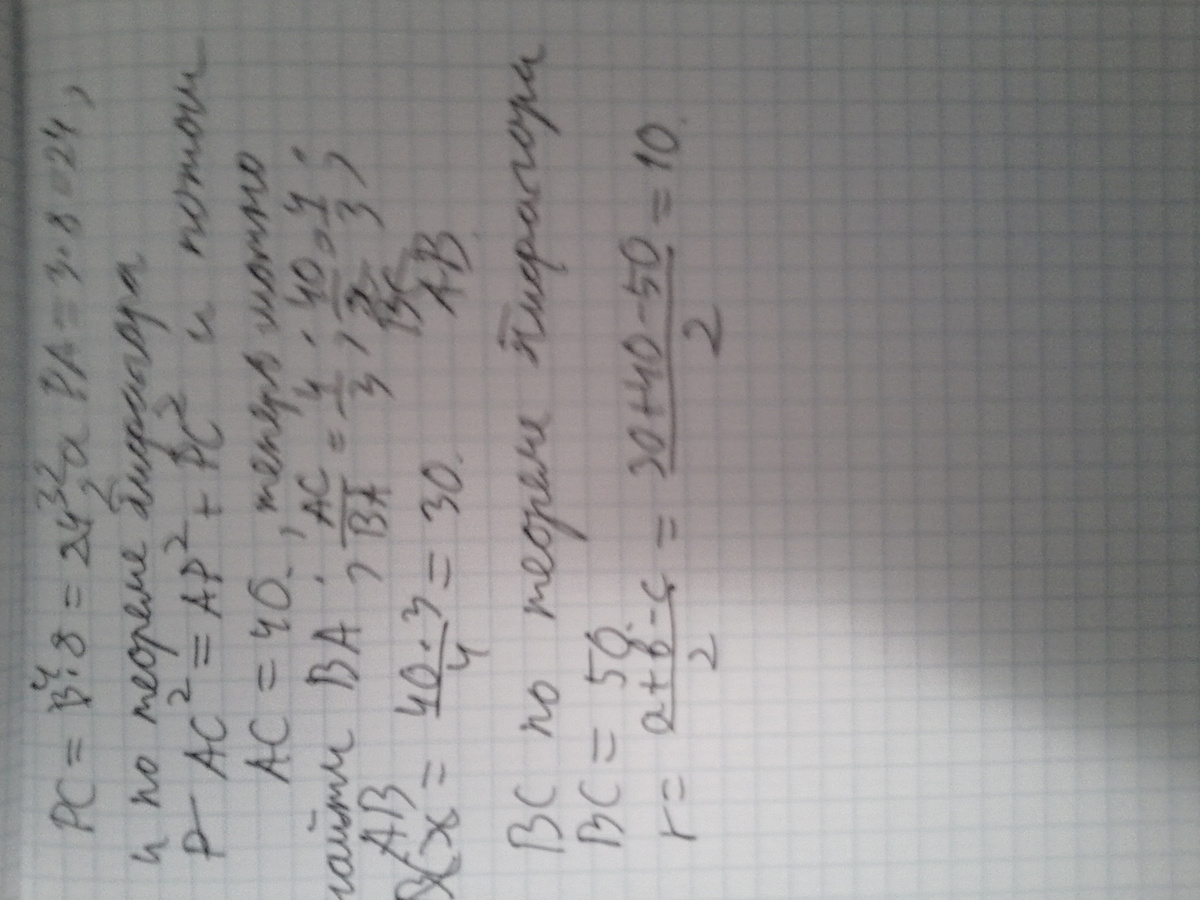 PC = 4·8 = 32 а PA = 3·8=24,
и по теореме Пифагора
AC² = AP² + PC² и потом
AC = 40, теперь можно
найти BA; AC/BA = 4/3; 40/x = 4/3;
AB
x = 40·3/4 = 30. AB
BC по теореме Пифагора
BC = 50.
r = a+b-c/2 = 30+40-50/2 = 10.